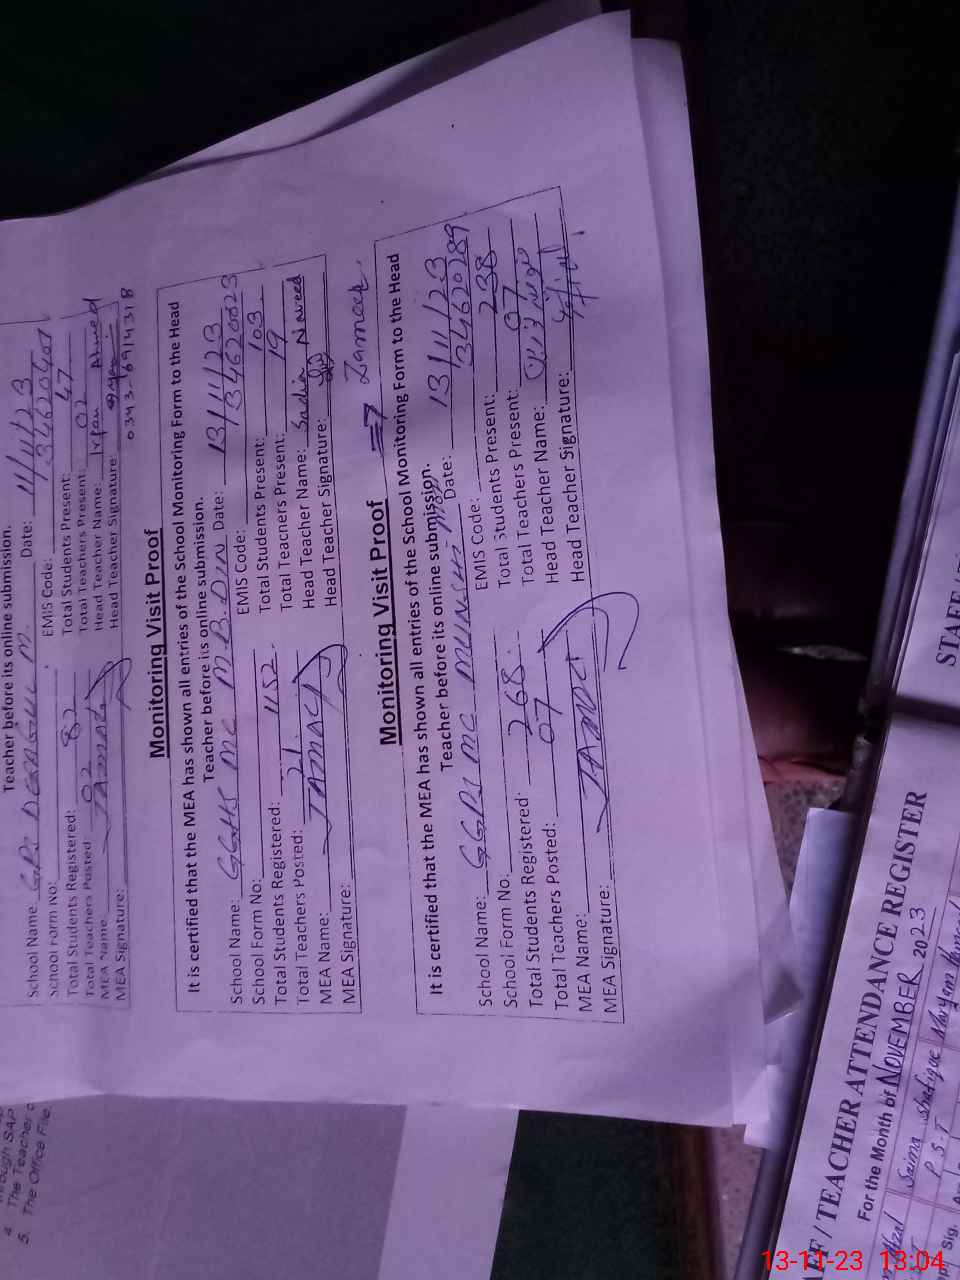 Teacher before its online submission.
School Name: G.P.S Date: 11/11/23
School Form No: EMIS Code:
Total Students Registered: 82 Total Students Present: 47
Total Teachers Posted: 02 Total Teachers Present: 02
MEA Name: Head Teacher Name: Irfan Ahmed
MEA Signature: Head Teacher Signature:
0343-6914318
Monitoring Visit Proof
It is certified that the MEA has shown all entries of the School Monitoring Form to the Head
Teacher before its online submission.
School Name: GGHS MC M.B.DIN Date: 13/11/23
School Form No: EMIS Code: 34620023
Total Students Registered: 1152. Total Students Present: 103.
Total Teachers Posted: 21. Total Teachers Present: 19
MEA Name: Head Teacher Name: Sadia Naveed
MEA Signature: Head Teacher Signature:
Monitoring Visit Proof
It is certified that the MEA has shown all entries of the School Monitoring Form to the Head
Teacher before its online submission.
School Name: GGPS MC Date: 13/11/23
School Form No: EMIS Code: 34620289
Total Students Registered: 268. Total Students Present: 238
Total Teachers Posted: 07 Total Teachers Present: 07
MEA Name: Head Teacher Name:
MEA Signature: Head Teacher Signature:
4. The Teacher
5. The Office File.
STAFF
/ TEACHER ATTENDANCE REGISTER
For the Month of NOVEMBER 2023
Saima Shafique Maryam
P.S.T
Sig.
13-11-23 13:04